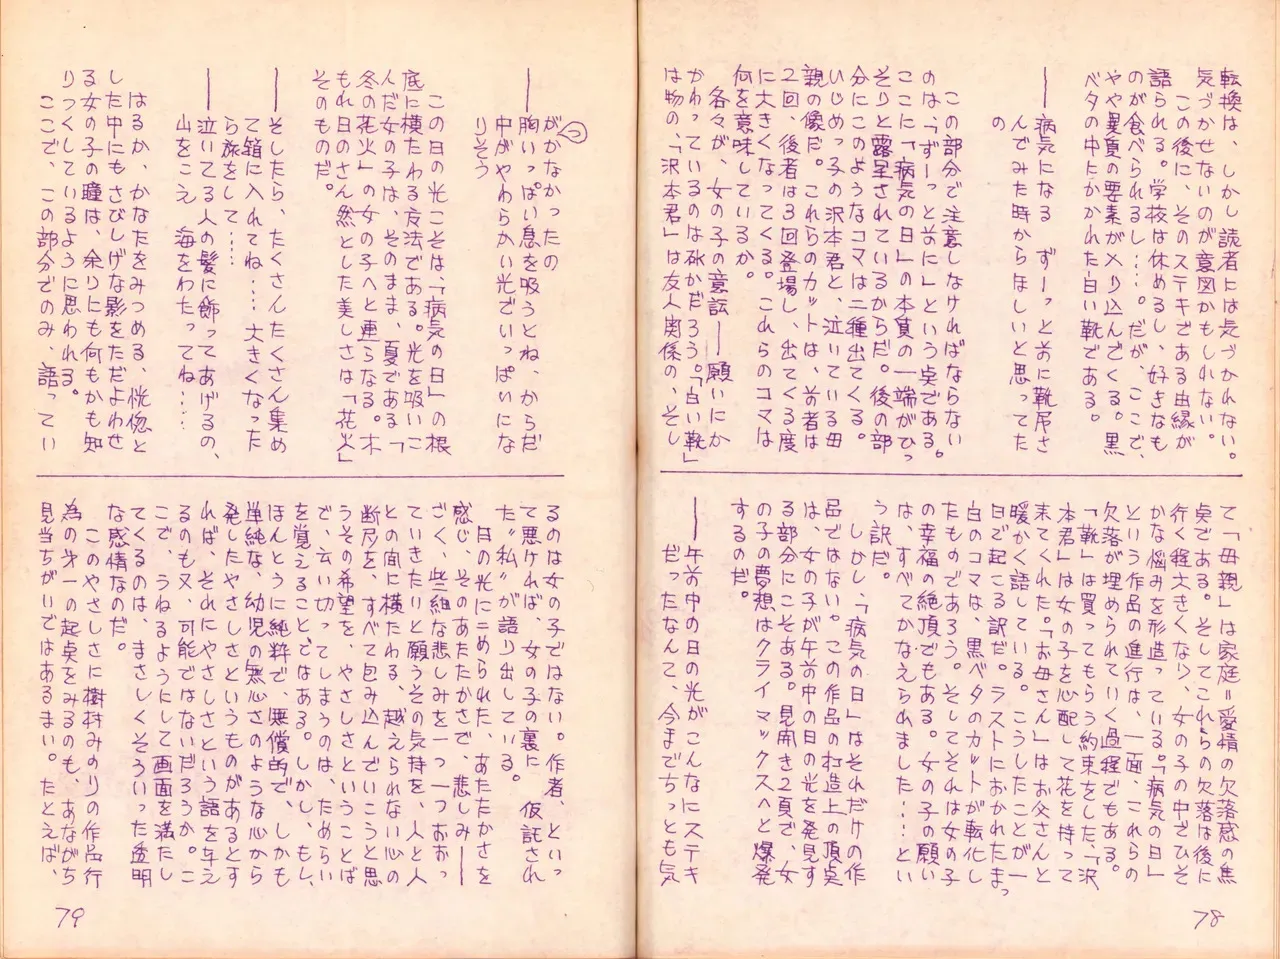 転換は、しかし読者には気づかれない。
気づかせないのが意図かもしれない。
この後に、そのステキである由縁が
語られる。学校は休めるし、好きなも
のが食べられるし……。だが、ここで、
やや異質の要素がメリ込んでくる。黒
ベタの中にかかれた白い靴である。
――病気になる ずーっと前に靴屋さ
んでみた時からほしいと思ってた
の
この部分で注意しなければならない
のは、「ずーっと前に」という点である。
ここに「病気の日」の本質の一端がひっ
そりと露呈されているからだ。後の部
分にこのようなコマは二種出てくる。
いじめっ子の沢本君と、泣いている母
親の像だ。これらのカットは、前者は
2回、後者は3回登場し、出てくる度
に大きくなってくる。これらのコマは
何を意味しているか。
各々が、女の子の意識――願いにか
かわっているのは確かだろう。「白い靴」
は物の、「沢本君」は友人関係の、そし
て「母親」は家庭=愛情の欠落感の焦
点である。そしてこれらの欠落は後に
行く程大きくなり、女の子の中でひそ
かな悩みを形造っている。「病気の日」
という作品の進行は、一面、これらの
欠落が埋められていく過程でもある。
「靴」は買ってもらう約束をした、「沢
本君」は女の子を心配して花を持って
来てくれた。「お母さん」はお父さんと
暖かく語している。こうしたことが一
日で起こる訳だ。ラストにおかれたまっ
白のコマは、黒ベタのカットが転化し
たものであろう。そしてそれは女の子
の幸福の絶頂でもある。女の子の願い
は、すべてかなえられました……とい
う訳だ。
しかし、「病気の日」はそれだけの作
品ではない。この作品の構造上の頂点
は、女の子が午前中の日の光を発見す
る部分にこそある。見開き2頁で、女
の子の夢想はクライマックスへと爆発
するのだ。
――午前中の日の光がこんなにステキ
だったなんて、今までちっとも気
78
がつかなかったの
――胸いっぱい息を吸うとね、からだ
中がやわらかい光でいっぱいにな
りそう
この日の光こそは、「病気の日」の根
底に横たわる方法である。光を吸いこ
んだ女の子は、そのまま、夏である「
冬の花火」の女の子へと連らなる。木
もれ日のさん然とした美しさは「花火」
そのものだ。
――そしたら、たくさんたくさん集め
て箱に入れてね……大きくなった
ら旅をして……
――泣いてる人の髪に飾ってあげるの、
山をこえ 海をわたってね……
はるか、かなたをみつめる、恍惚と
した中にもさびしげな影をただよわせ
る女の子の瞳は、余りにも何もかも知
りつくしているように思われる。
ここで、この部分でのみ、語ってい
るのは女の子ではない。作者、といっ
て悪ければ、女の子の裏に 仮託され
た〝私〟が語り出している。
日の光にこめられた、あたたかさを
感じ、そのあたたかさで、悲しみ――
ごく、些細な悲しみを一つ一つおおっ
ていきたいと願うその気持を、人と人
との間に横たわる、越えられない心の
断層を、すべて包み込んでいこうと思
うその希望を、やさしさということば
で、云い切ってしまうのは、ためらい
を覚えることではある。しかし、もし、
ほんとうに純粋で、無償的で、しかも
単純な、幼児の無心さのような心から
発したやさしさというものがあるとす
れば、それにやさしさという語を与え
るのも又、可能ではないだろうか。こ
こで、うねるようにして画面を満たし
てくるのは、まさしくそういった透明
な感情なのだ。
このやさしさに樹村みのりの作品行
為の才一の起点をみるのも、あながち
見当ちがいではあるまい。たとえば、
79